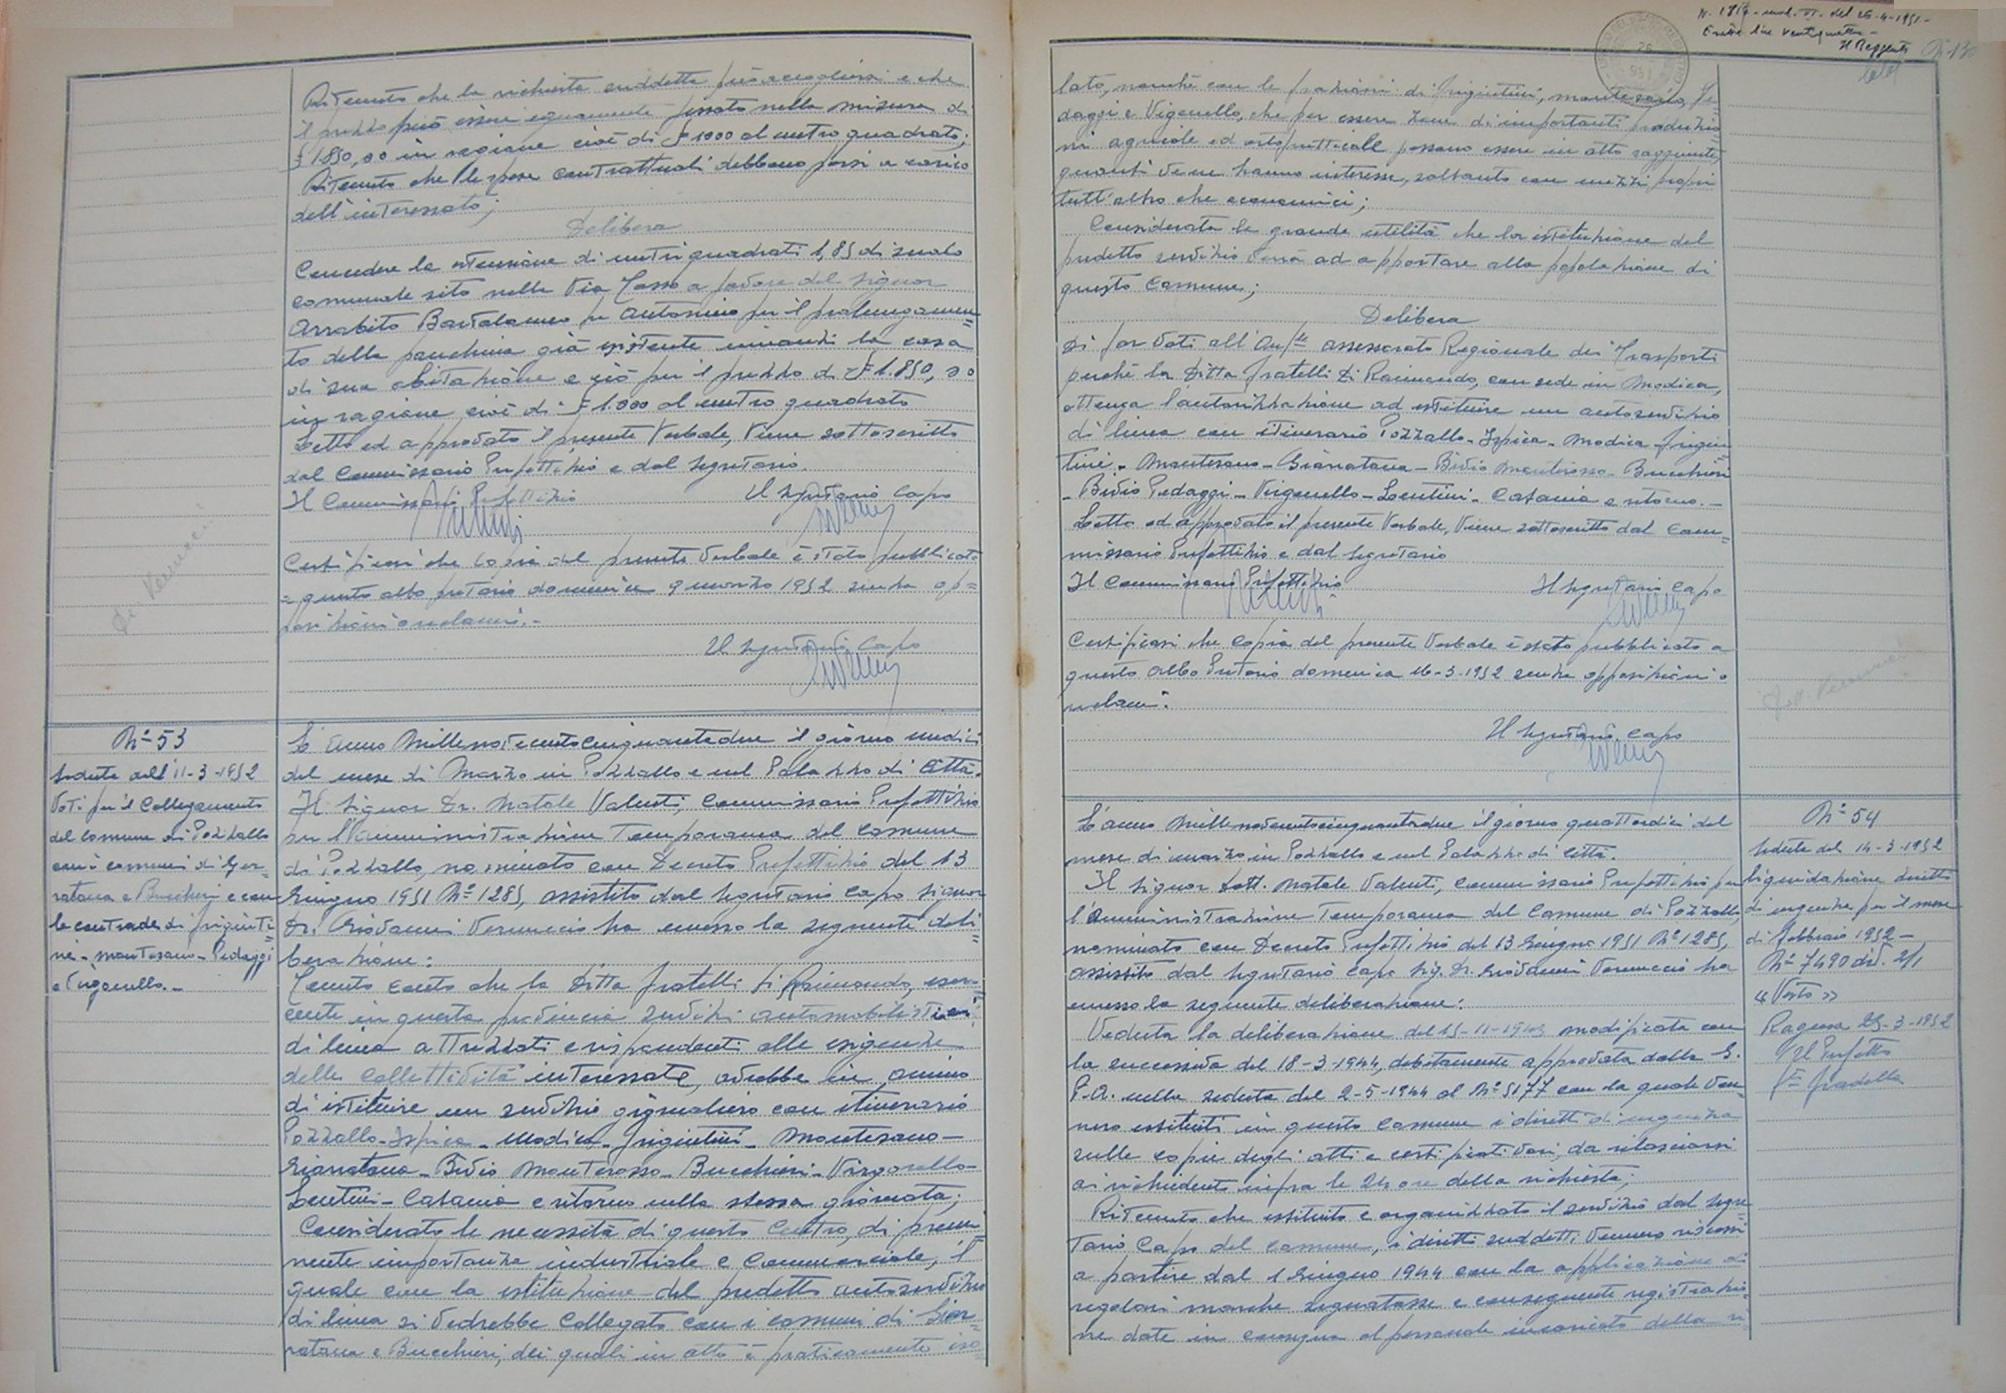 Ritenuto che la richiesta suddetta può accogliersi e che
il prezzo può essere equamente fissato nella misura di
£ 1850,00 in ragione cioè di £ 1000 al metro quadrato;
Ritenuto che le spese contrattuali debbono porsi a carico
dell'interessato;
Delibera
Concedere la estensione di metri quadrati 1,85 di suolo
comunale sito nella Via Tasso a favore del Signor
Arrabito Bartolomeo fu Antonino per il prolungamen=
to della panchina già esistente innanzi la casa
di sua abitazione e ciò per il prezzo di £ 1.850,00
in ragione cioè di £ 1.000 al metro quadrato
Letto ed approvato il presente Verbale, viene sottoscritto
dal Commissario Prefettizio e dal Segretario.
Il Commissario Prefettizio Il Segretario Capo
Certificasi che copia del presente Verbale è stato pubblicato
a questo albo pretorio domenica 9 marzo 1952 senza op=
posizioni o reclami.-
Il Segretario Capo
N° 53
Seduta dell'11-3-1952
Voti per il Collegamento
del comune di Pozzallo
con i comuni di Giar-
ratana e Buccheri e con
le contrade di Friginti=
ni - Montesano - Pedaggi
e Virgarello.-
L'anno Millenovecentocinquantadue il giorno undici
del mese di Marzo in Pozzallo e nel Palazzo di Città.
Il Signor Dr. Natale Valenti, Commissario Prefettizio
per l'Amministrazione Temporanea del Comune
di Pozzallo, nominato con Decreto Prefettizio del 13
Giugno 1951 N° 1285, assistito dal Segretario Capo Signor
Dr. Giovanni Vernuccio ha emesso la seguente deli=
berazione:
Tenuto conto che la Ditta Fratelli Di Raimondo, eser=
cente in questa provincia servizi automobilistici
di linea attrezzati e rispondenti alle esigenze
delle collettività interessate, avrebbe in animo
di istituire un servizio giornaliero con itinerario
Pozzallo-Ispica-Modica-Frigintini-Montesano-
Giarratana-Bivio Monterosso-Buccheri-Virgarello-
Lentini-Catania e ritorno nella stessa giornata;
Considerato le necessità di questo Centro, di premi=
nente importanza industriale e commerciale, il
quale con la istituzione del predetto autoservizio
di linea si vedrebbe collegato con i comuni di Giar=
ratana e Buccheri, dei quali in atto è praticamente iso
N. 1814 - mod. VI - del 26-4-1951-
Il Reggente
lato, nonché con le frazioni di Frigintini, Montesano, Pe
daggi e Virgarello, che per essere zone di importanti produzio
ni agricole ed ortofrutticole possono essere in atto raggiunte,
quanti vi ne hanno interesse, soltanto con mezzi propri
tutt'altro che economici;
Considerata la grande utilità che la istituzione del
predetto servizio verrà ad apportare alla popolazione di
questo Comune;
Delibera
Di far Voti all'On/le Assessorato Regionale dei Trasporti
perché la Ditta Fratelli Di Raimondo, con sede in Modica,
ottenga l'autorizzazione ad istituire un autoservizio
di linea con itinerario Pozzallo-Ispica-Modica-Frigin
tini-Montesano-Giarratana-Bivio Monterosso-Buccheri
-Bivio Pedaggi-Virgarello-Lentini-Catania e ritorno.-
Letto ed approvato il presente Verbale, viene sottoscritto dal Com=
missario Prefettizio e dal Segretario
Il Commissario Prefettizio Il Segretario Capo
Certificasi che copia del presente Verbale è stato pubblicato a
questo albo Pretorio domenica 16-3-1952 senza opposizioni o
reclami.
Il Segretario Capo
L'anno Millenovecentocinquantadue il giorno quattordici del
mese di marzo in Pozzallo e nel Palazzo di Città.
Il Signor Dott. Natale Valenti, Commissario Prefettizio per
l'Amministrazione Temporanea del Comune di Pozzallo
nominato con Decreto Prefettizio del 13 Giugno 1951 N° 1285,
assistito dal Segretario Capo Sig. Dr. Giovanni Vernuccio ha
emesso la seguente deliberazione:
Veduta la deliberazione del 15-11-1943 modificata con
la successiva del 18-3-1944, debitamente approvata dalla G.
P.A. nella seduta del 2-5-1944 al N° 5177 con la quale ven=
nero istituiti in questo Comune i diritti di urgenza
sulle copie degli atti e certificati vari, da rilasciarsi
ai richiedenti infra le 24 ore della richiesta;
Ritenuto che istituito e organizzato il servizio dal Segre=
tario Capo del Comune, i diritti suddetti vennero riscossi
a partire dal 1 Giugno 1944 con la applicazione di
regolari marche segnatasse e conseguente registrazio
ne date in consegna al personale incaricato della ri=
N° 54
Seduta del 14-3-1952
Liquidazione diritti
di urgenza per il mese
di febbraio 1952-
N° 7490 div. 2/1
"Visto"
Ragusa 25-3-1952
Il Prefetto